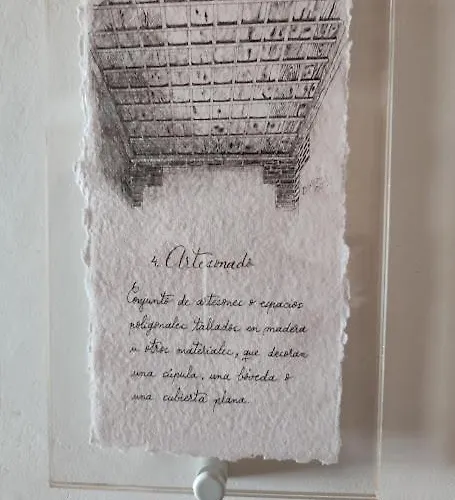 4. Artesonado
Conjunto de artesones o espacios
poligonales tallados en madera
u otros materiales, que decoran
una cúpula, una bóveda o
una cubierta plana.